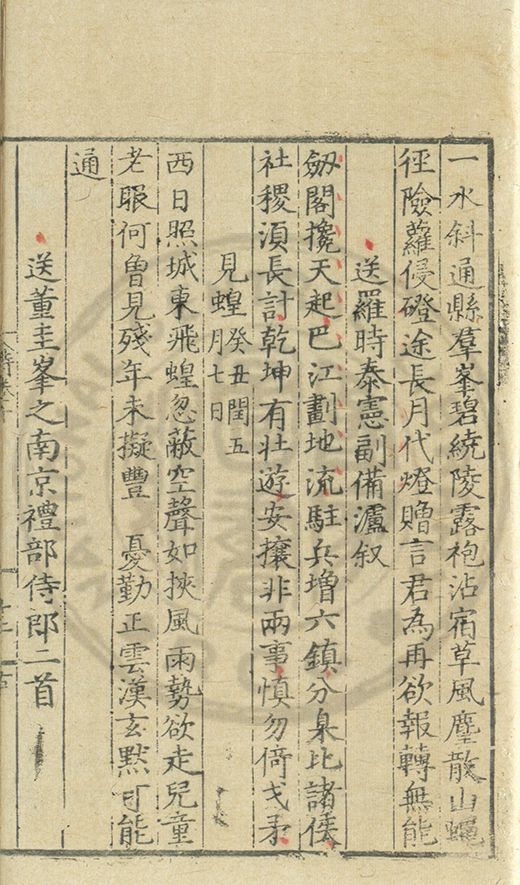 一水斜通縣羣峯碧繞陵露袍沾宿草風塵散山蠅
徑險蘿侵磴途長月代燈贈言君為再欲報轉無能
送羅時泰憲副備瀘叙
劒閣攙天起巴江劃地流駐兵增六鎮分臬比諸侯
社稷湏長計乾坤有壯遊安攘非兩事慎勿倚戈矛
見蝗癸丑閏五月七日
西日照城東飛蝗忽蔽空聲如挾風雨勢欲走兒童
老眼何魯見殘年未擬豐 憂勤正雲漢玄默可能
通
送董圭峯之南京禮部侍郎二首